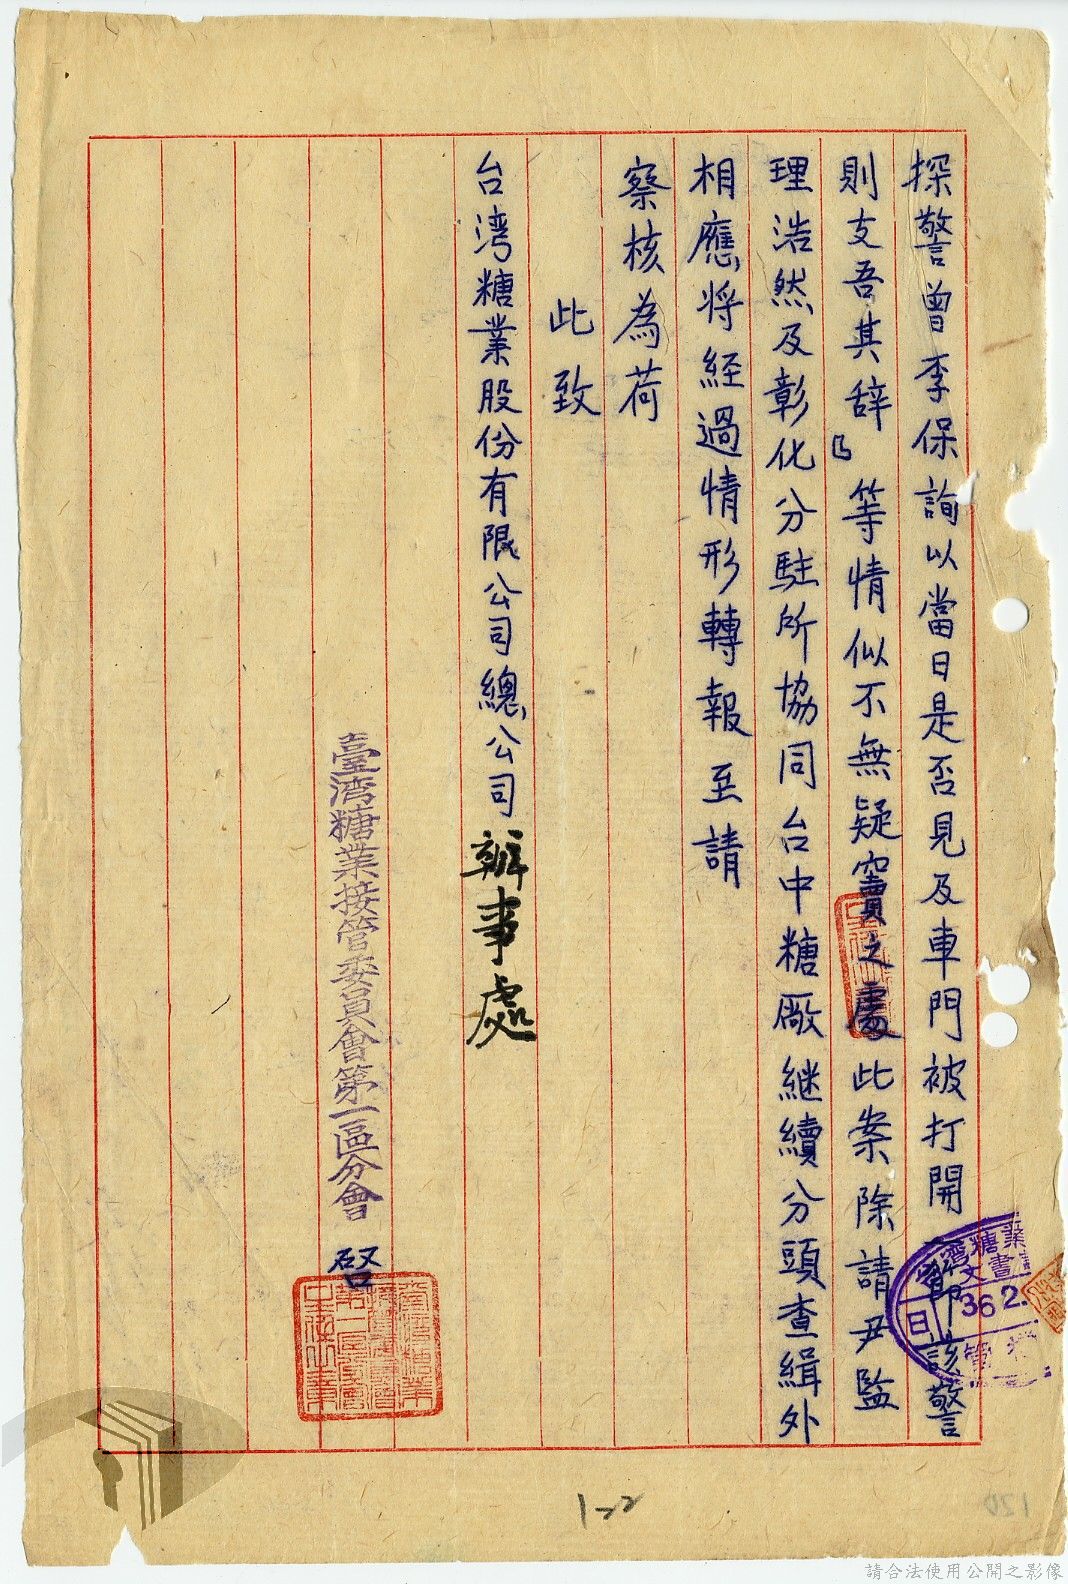 探警曾李保詢以當日是否見及車門被打開 郎該警
則支吾其辞』等情似不無疑竇之處此案除請尹監
理浩然及彰化分駐所協同台中糖厰継續分頭查緝外
相應将經過情形轉報至請
察核為荷
此致
台湾糖業股份有限公司總公司辦事處
臺湾糖業接管委員會第一區分會 啓
灣糖業
文書
36 2.
日
管
1-2
120
請合法使用公開之影像